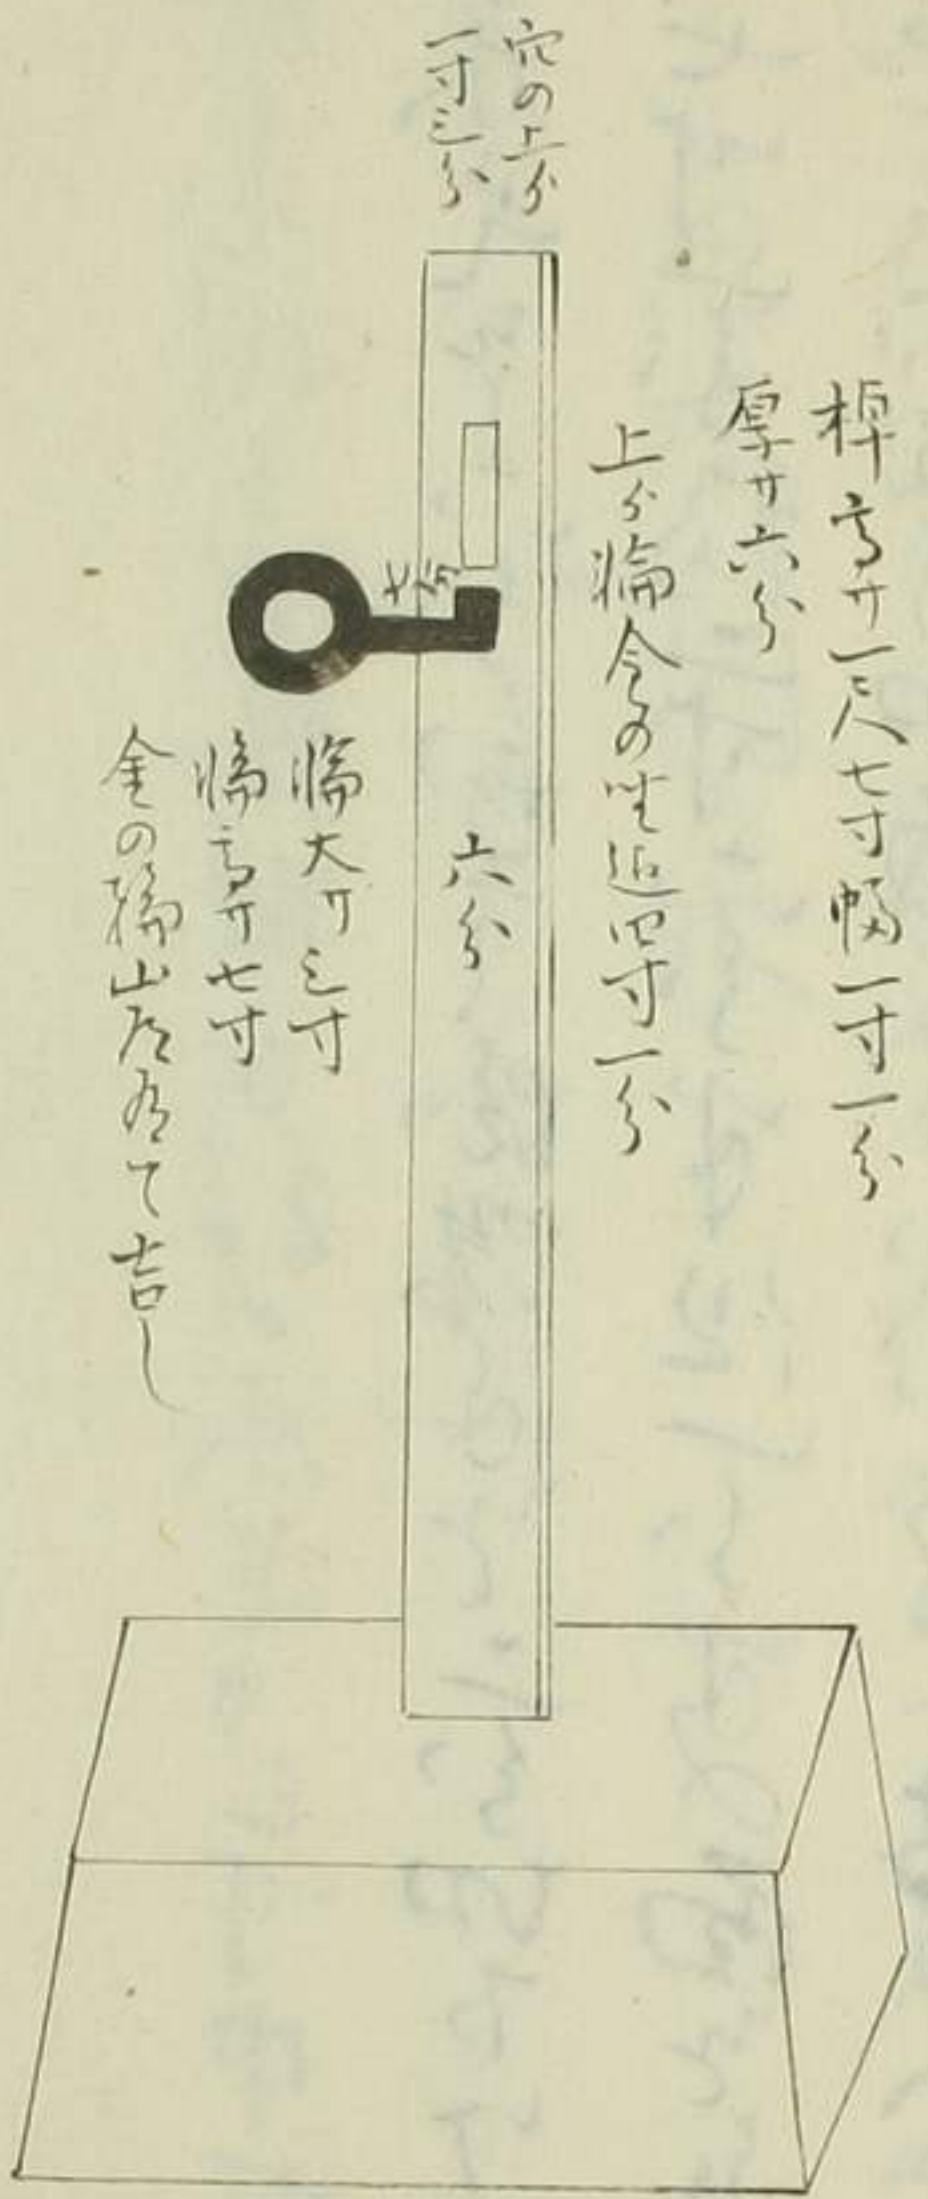 棹高サ一尺七寸幅一寸一分
厚サ六分
上ゟ輪金の坐迠四寸一分
穴の上ゟ
一寸三分
六分
輪大サ三寸
輪高サ七寸
金の輪山居為て吉し